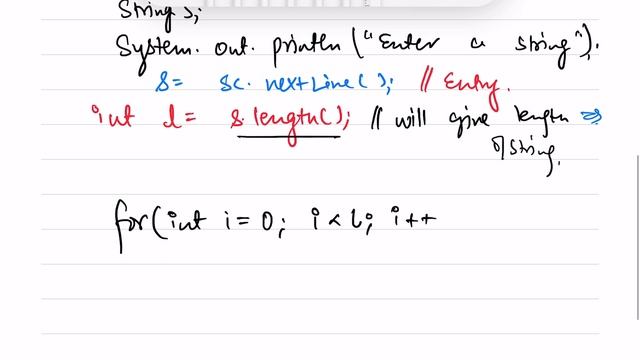 String s;
System. out. println ("Enter a string").
s= sc. nextLine(); // Entry.
int l = s.length(); // will give length ⇒
of String.
for(int i=0; i<l; i++